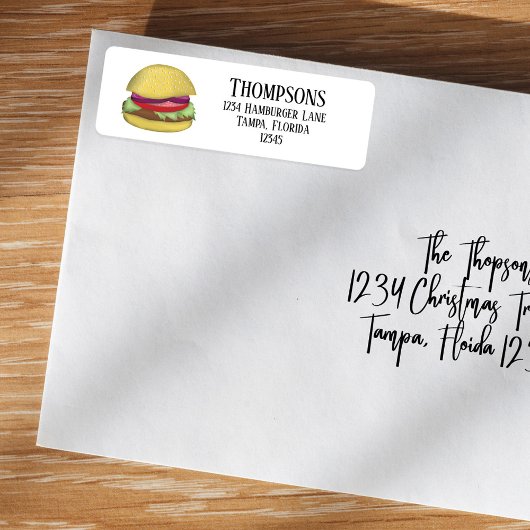 Thompsons
1234 Hamburger Lane
Tampa, Florida
12345
The Thopson
1234 Christmas Tr
Tampa, Floida 123